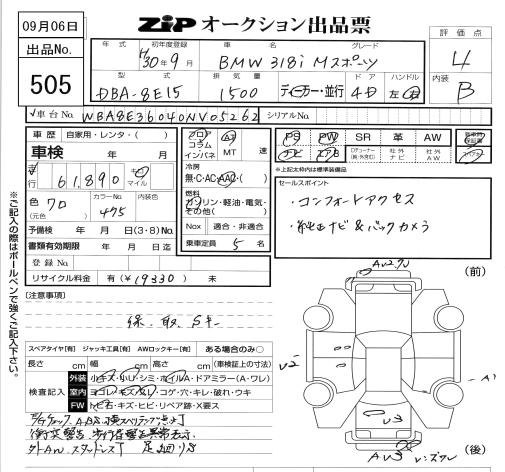 09月06日
ZIP オークション出品票
出品No.
505
評価点
4
内装
B
年式 初年度登録 車名 グレード
H30年9月 BMW 318i Mスポーツ
型式 排気量 ドア ハンドル
DBA-8E15 1500 ディーラー・並行 4D 左・右
車台No. WBA8E36040NV05262 シリアルNo.
車歴 自家用・レンタ・( )
車検 年 月
走行 61,890 キロ マイル
色 クロ カラーNo. 475 内装色
(元色)
予備検 年 月 日 (3・8) No.
書類有効期限 年 月 日迄
登録No.
リサイクル料金 有 (¥19330) 未
フロア コラム インパネ AT MT 速
冷房
無・C・AC・AAC・( )
燃料
ガソリン・軽油・電気・その他( )
Nox 適合・非適合
乗車定員 5 名
PS PW SR 革 AW
ナビ エアB 社外ナビ 社外AW
※上記太枠内は標準装備品
セールスポイント
・コンフォートアクセス
・純正ナビ&バックカメラ
※ご記入の際はボールペンで強くご記入下さい。
[注意事項]
保、取、Sキー
スペアタイヤ[有] ジャッキ工具[有] AWロックキー[有] ある場合のみ○
長さ cm 幅 cm 高さ cm (車検証上の寸法)
検査記入
外装 小キズ・小U・シミ・ホイルA・ドアミラー(A・ワレ)
室内 ヨゴレ・キズ・スレ・コゲ・穴・キレ・破れ・ウキ
FW トビ石・キズ・ヒビ・リペア跡・X要ス
(前)
(後)